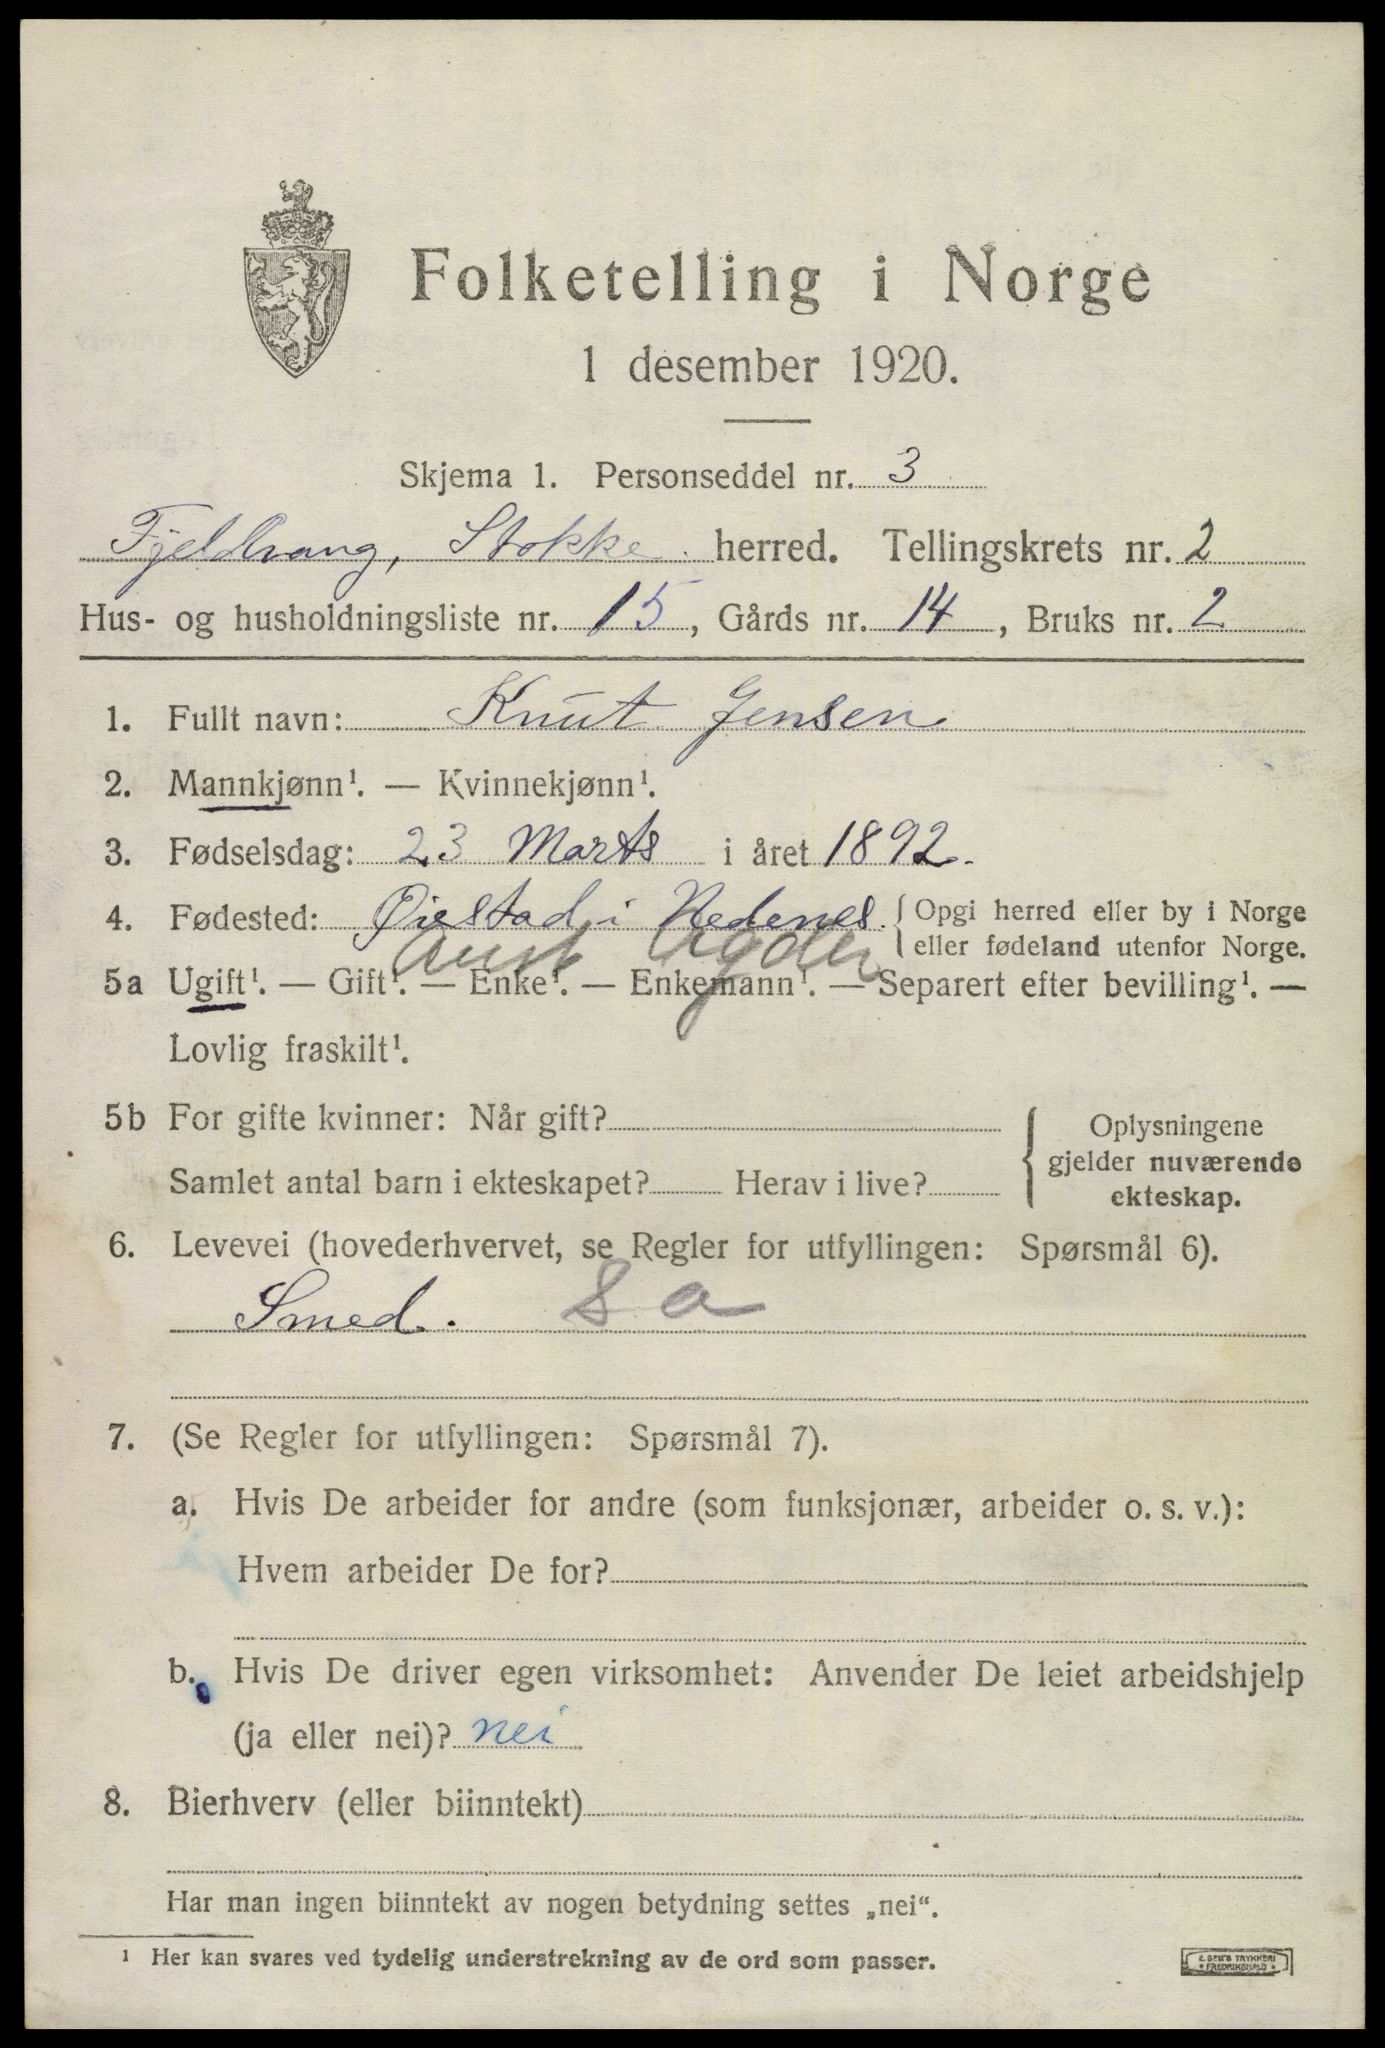 Folketelling i Norge
1 desember 1920.
Skjema 1. Personseddel nr. 3
Fjeldvang, Stokke herred. Tellingskrets nr. 2
Hus- og husholdningsliste nr. 15, Gårds nr. 14, Bruks nr. 2
1. Fullt navn: Knut Jensen
2. Mannkjønn¹. — Kvinnekjønn¹.
3. Fødselsdag: 23 Marts i året 1892.
4. Fødested: Øiestad i Nedenes. { Opgi herred eller by i Norge
eller fødeland utenfor Norge.
Aust Agder
5a Ugift¹. — Gift¹. — Enke¹. — Enkemann¹. — Separert efter bevilling¹. —
Lovlig fraskilt¹.
5b For gifte kvinner: Når gift?
Samlet antal barn i ekteskapet? Herav i live?
{ Oplysningene
gjelder nuværende
ekteskap.
6. Levevei (hovederhvervet, se Regler for utfyllingen: Spørsmål 6).
Smed. 8 a
7. (Se Regler for utfyllingen: Spørsmål 7).
a. Hvis De arbeider for andre (som funksjonær, arbeider o. s. v.):
Hvem arbeider De for?
b. Hvis De driver egen virksomhet: Anvender De leiet arbeidshjelp
(ja eller nei)? nei
8. Bierhverv (eller biinntekt)
Har man ingen biinntekt av nogen betydning settes „nei“.
¹ Her kan svares ved tydelig understrekning av de ord som passer.
TRYKKERI
FREDRIKSHALD